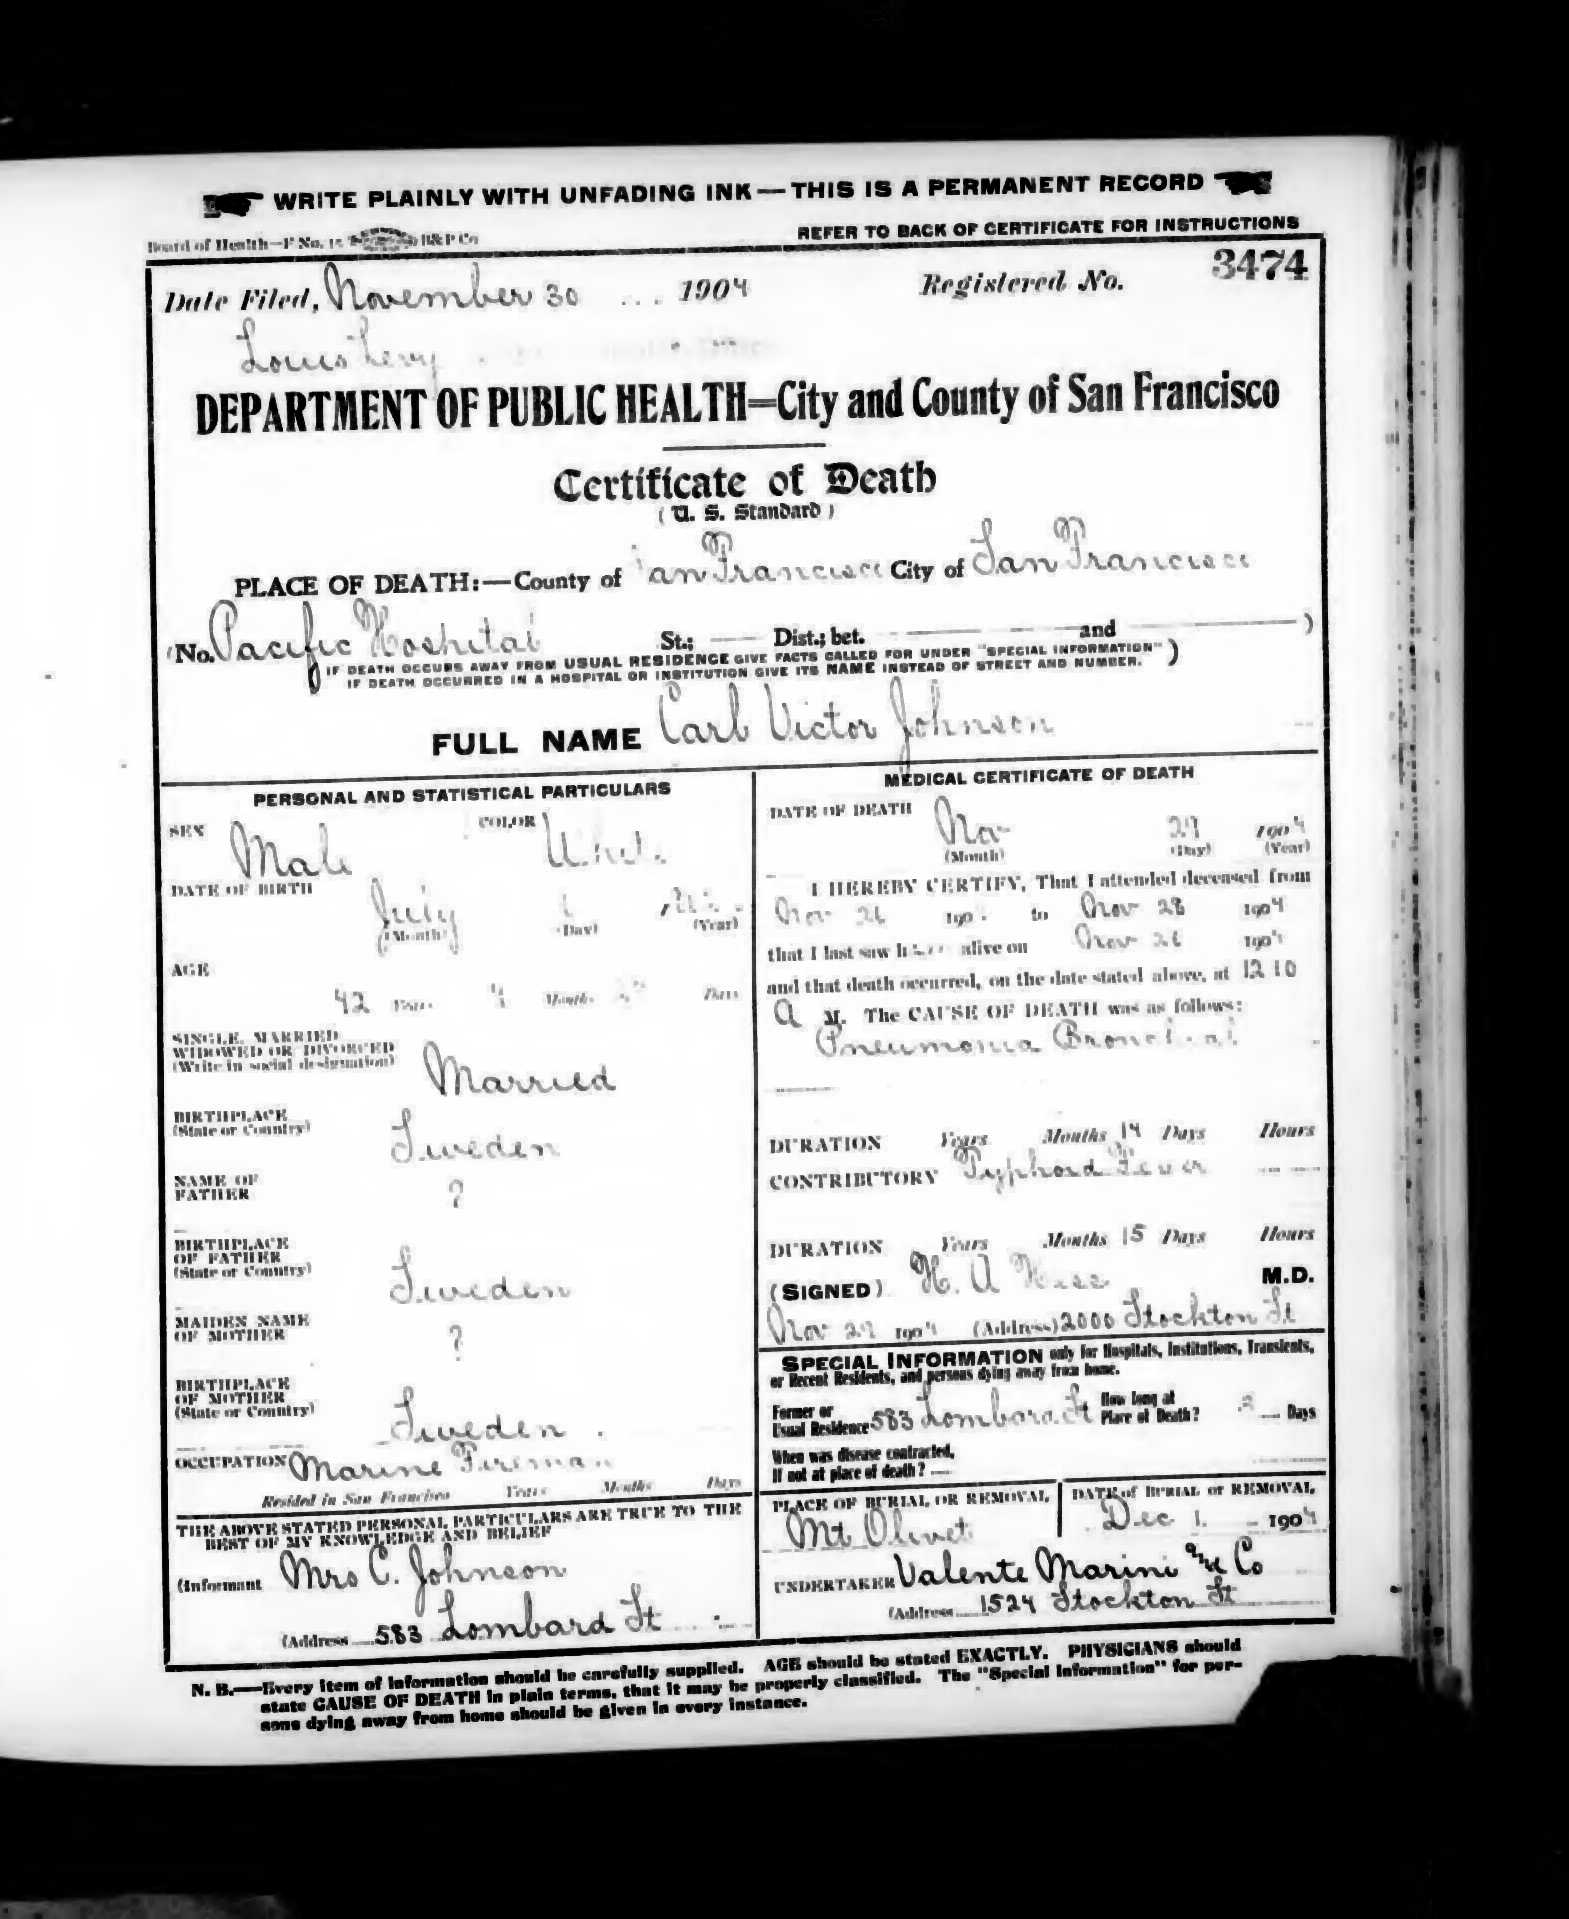 WRITE PLAINLY WITH UNFADING INK—THIS IS A PERMANENT RECORD
Board of Health—F No. H&P Co
REFER TO BACK OF CERTIFICATE FOR INSTRUCTIONS
Date Filed, November 30 1904 Registered No. 3474
Louis Levy
DEPARTMENT OF PUBLIC HEALTH=City and County of San Francisco
Certificate of Death
(U. S. Standard)
PLACE OF DEATH:—County of San Francisco City of San Francisco
(No. Pacific Hospital St.; Dist.; bet. and )
(IF DEATH OCCURS AWAY FROM USUAL RESIDENCE GIVE FACTS CALLED FOR UNDER "SPECIAL INFORMATION")
IF DEATH OCCURRED IN A HOSPITAL OR INSTITUTION GIVE ITS NAME INSTEAD OF STREET AND NUMBER.
FULL NAME Carl Victor Johnson
PERSONAL AND STATISTICAL PARTICULARS
SEX Male COLOR White
DATE OF BIRTH July
(Month) (Day) (Year)
AGE
42 Years 4 Months Days
SINGLE, MARRIED
WIDOWED OR DIVORCED
(Write in social designation) Married
BIRTHPLACE
(State or Country) Sweden
NAME OF
FATHER ?
BIRTHPLACE
OF FATHER
(State or Country) Sweden
MAIDEN NAME
OF MOTHER ?
BIRTHPLACE
OF MOTHER
(State or Country) Sweden
OCCUPATION Marine Fireman
Resided in San Francisco Years Months Days
THE ABOVE STATED PERSONAL PARTICULARS ARE TRUE TO THE
BEST OF MY KNOWLEDGE AND BELIEF
(Informant Mrs C. Johnson
(Address 583 Lombard St
MEDICAL CERTIFICATE OF DEATH
DATE OF DEATH Nov 29 1904
(Month) (Day) (Year)
I HEREBY CERTIFY, That I attended deceased from
Nov 26 190 to Nov 28 1904
that I last saw h alive on Nov 1904
and that death occurred, on the date stated above, at 12 10
A M. The CAUSE OF DEATH was as follows:
Pneumonia Bronchial
DURATION Years Months 14 Days Hours
CONTRIBUTORY Typhoid Fever
DURATION Years Months 15 Days Hours
(SIGNED) H. A M.D.
Nov 29 1904 (Address) 2000 Stockton St
SPECIAL INFORMATION only for Hospitals, Institutions, Transients,
or Recent Residents, and persons dying away from home.
Former or
Usual Residence 583 Lombard St How long at
Place of Death? Days
When was disease contracted,
If not at place of death?
PLACE OF BURIAL OR REMOVAL DATE of BURIAL or REMOVAL
Mt Olivet Dec 1 1904
UNDERTAKER Valente Marini and Co
(Address 1524 Stockton St
N. B.—Every item of information should be carefully supplied. AGE should be stated EXACTLY. PHYSICIANS should
state CAUSE OF DEATH in plain terms, that it may be properly classified. The "Special Information" for per-
sons dying away from home should be given in every instance.